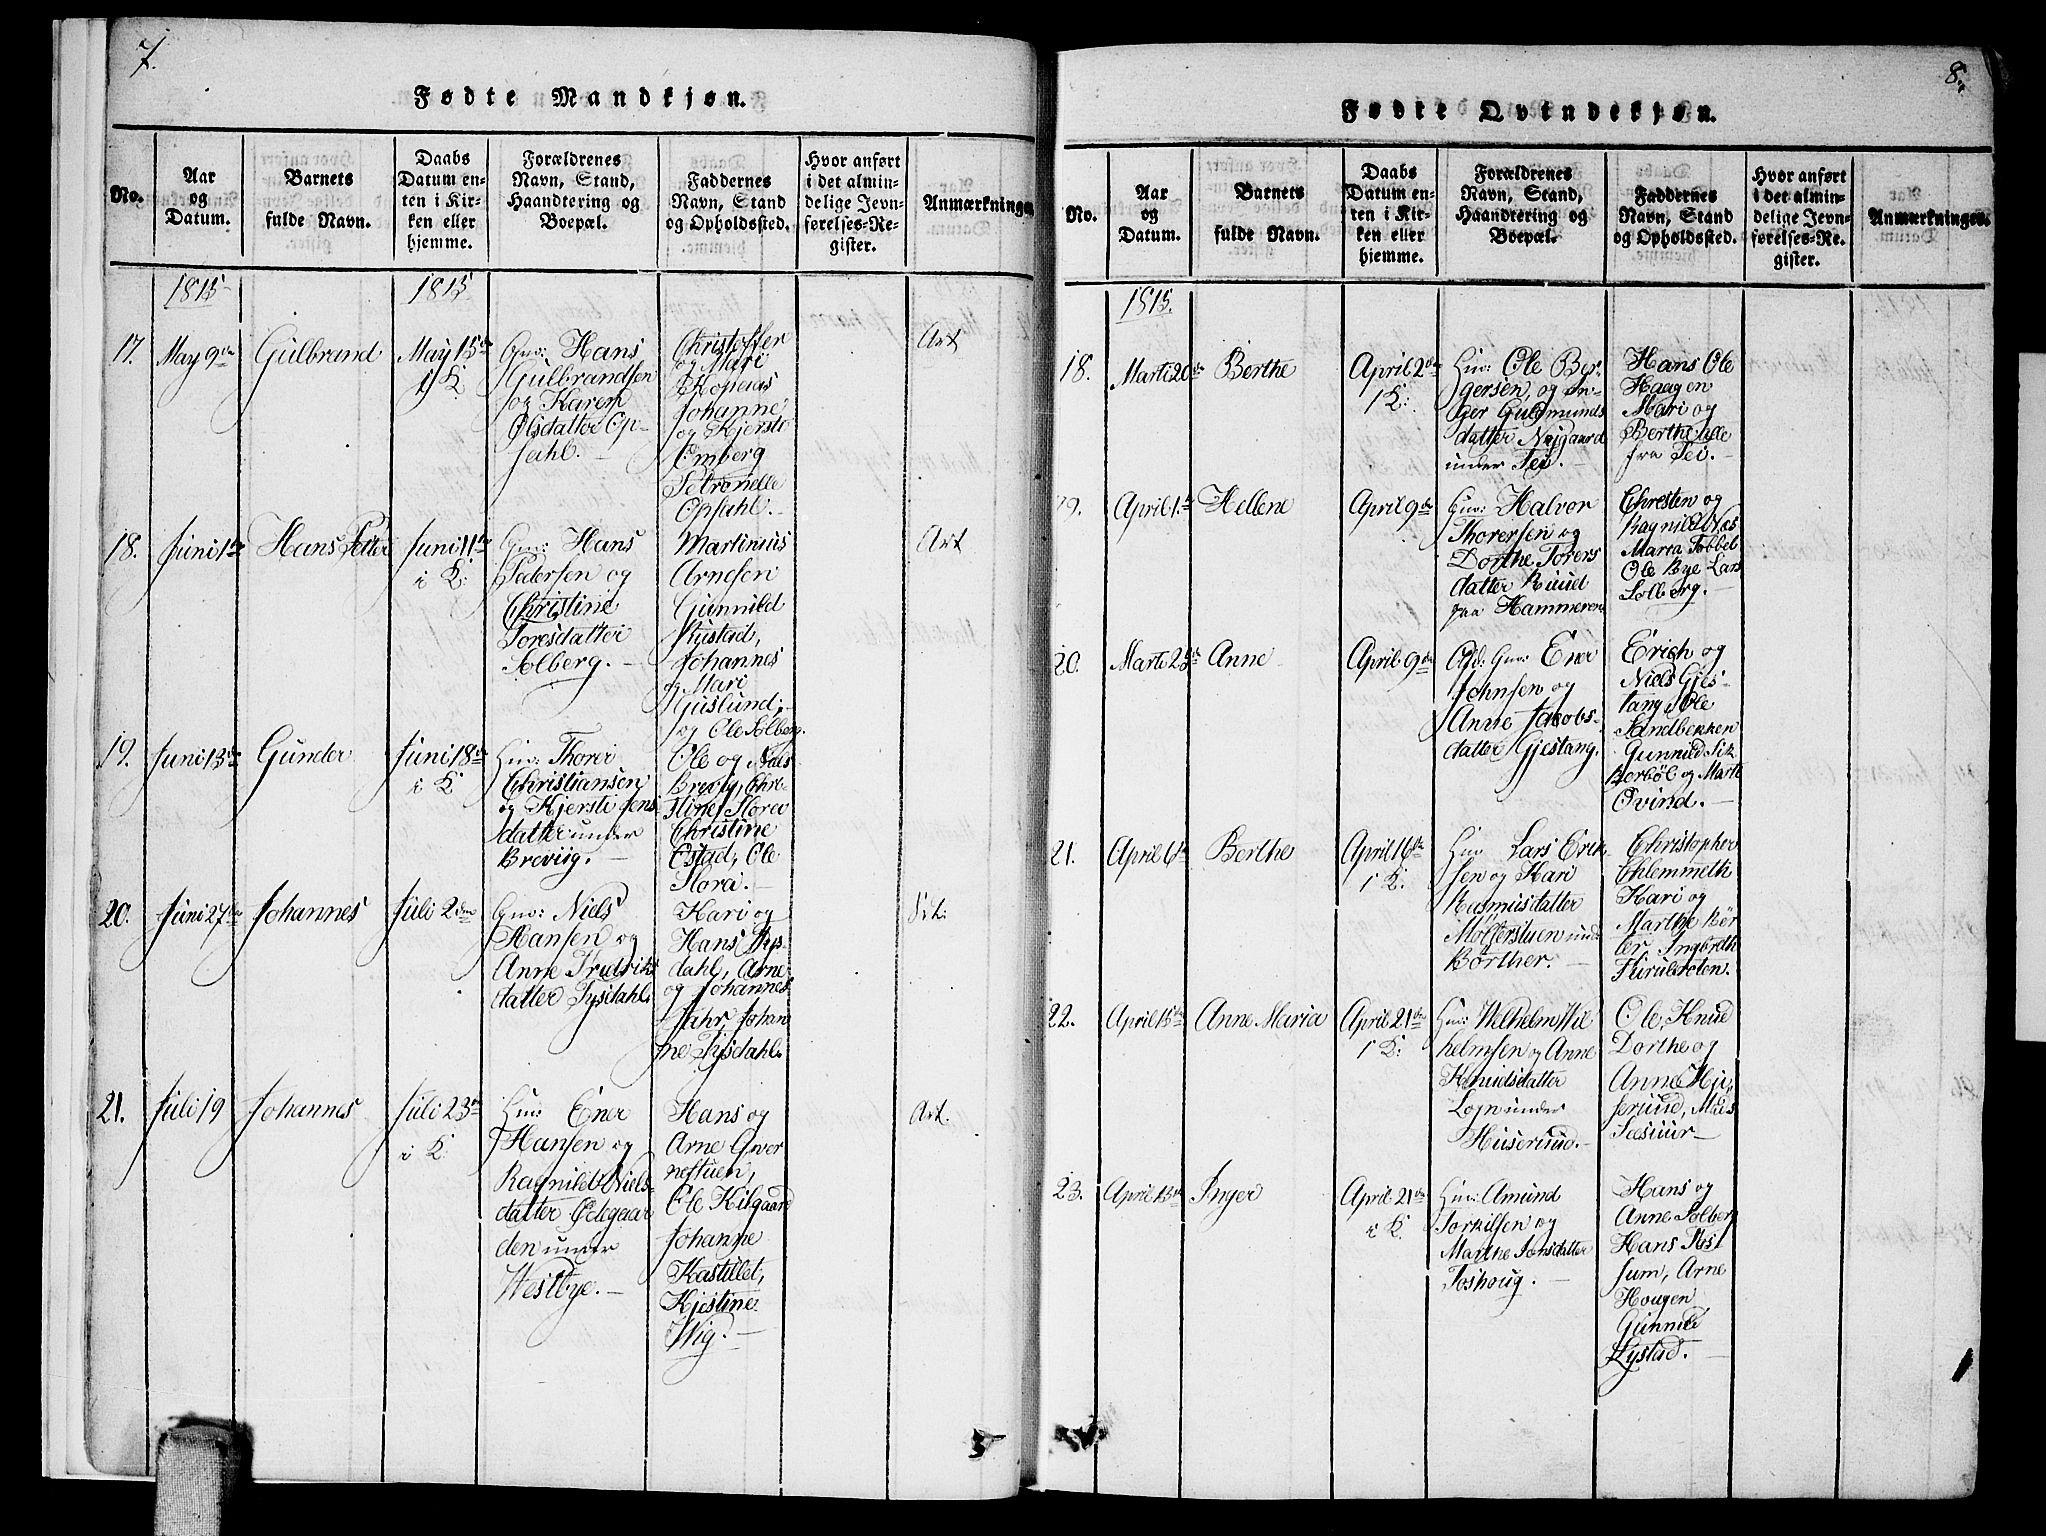 7.
Fødte Mandkjøn.
No.
Aar
og
Datum.
Barnets
fulde Navn.
Daabs
Datum en-
ten i Kir-
ken eller
hjemme.
Forældrenes
Navn, Stand,
Haandtering og
Boepæl.
Faddernes
Navn, Stand
og Opholdssted.
Hvor anført
i det almin-
delige Jevn-
førelses-Re-
gister.
Anmærkninger
1815
1815
17.
May 9de
Gulbrand
May 15de
i K.
Gm: Hans
Gulbrandsen
og Karem
Olsdatter Op-
sahl.
Christoffer
og Mari
Kopaas
Johanne
og Kjersto
Omberg
Petronelle
Opsahl.
Art
18.
Juni 1te
Hans Petter
Juni 11te
i K:
Gm: Hans
Pedersen og
Christine
Toresdatter
Solberg.
Martinius
Arnesen
Gunnild
Rustad,
Johannes
og Mari
Guslund,
og Ole Solberg.
Art
19.
Juni 13de
Gunder
Juni 18de
i K
Hm: Thorer
Christiansen
og Kjersti Jens
datter under
Breviig.
Ole og Niels
Brevig, Chri-
stine Flora
Christine
Ostad, Ole
Flora.
20.
Juni 27de
Johannes
Juli 2den
Gm: Niels
Hansen og
Anne Fredriks
datter Tysdahl.
Kari og
Hans Tys-
dahl, Arne
og Johannes
Jahr, Johan
ne Tysdahl.
Sit:
21.
Juli 19
Johannes
Juli 23de
i K.
Hm: Ener
Hansen og
Ragnild Niels-
datter Ødegaar
den under
Westbye.
Hans og
Arne Qver
nestuen,
Ole Kilgaard
Johanne
Kastillet,
Kjestine
Wig.
Art.
8.
Fødte Qvindekjøn.
No.
Aar
og
Datum.
Barnets
fulde Navn.
Daabs
Datum en-
ten i Kir-
ken eller
hjemme.
Forældrenes
Navn, Stand,
Haandtering og
Boepæl.
Faddernes
Navn, Stand
og Opholdssted.
Hvor anført
i det almin-
delige Jevn-
førelses-Re-
gister.
Anmærkninger.
1815.
18.
Marti 20de
Berthe
April 2den
i K:
Hm: Ole Ber-
gersen, og In-
ger Gudmunds
datter Nygaard
under Tei.
Hans Ole
Haagen
Mari og
Berthe alle
fra Tei.
19.
April 1te
Hellene
April 9de
Gm: Halvor
Thorersen og
Dorthe Torers
datter Ruud
paa Hammeren
Chresten og
Ragnild Næs
Maria Tobbel
Ole Bye Lars
Solberg.
20.
Marti 28de
Anne
April 9de
Opd: Gm: Ener
Johnsen og
Anne Jacobs-
datter Gjestang.
Erich og
Niels Gjes-
tang, Ole
Sandbekken
Gunnild Sik
Berbøl og Marte
Øvind.
21.
April 6te
Berthe
April 16de
i K:
Hm Lars Erik
sen og Kari
Rasmusdatter
Mølferstuen und
Børther.
Christopher
Chlemmeth
Kari og
Marthe Bör
ter Ingbreth
Furuberoten.
22.
April 15de
Anne Maria
April 21de
i K:
Hm: Wilhelm Wil
helmsen og Anne
Knudsdatter
Lojn under
Huserud.
Ole, Knud
Dorthe og
Anne Hu-
serud,
23.
April 13de
Inger
April 21de
i K.
Hm: Amund
Torkilsen og
Marthe Jonsdatter
Toshoug.
Hans og
Anne Solberg
Hans Rys
sum, Arne
Hougen
Gunnild
Lystad.